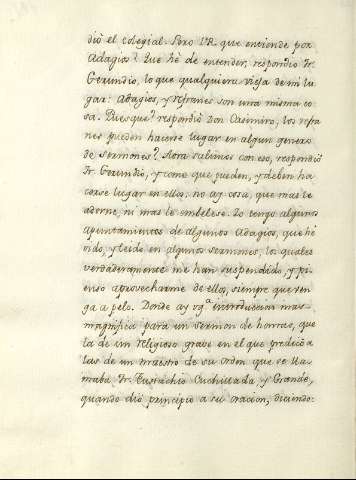 dió el colegial. Pero V.R. que entiende por
Adagios? Que hè de entender, respondio Fr.
Gerundio, lo que qualquiera vieja de mi lu
gar: Adagios, y refranes son una misma co
sa. Pues que? respondiò Don Casimiro, los refra
nes pueden hacerse lugar en algun genero
de sermones? Aora salimos con eso, respondiò
Fr. Gerundio, y como que pueden, y deben ha
cerse lugar en ellos, no ay cosa, que mas le
adorne, ni mas le embelese. Yo tengo algunos
apuntamientos de algunos Adagios, que hè
oido, y leido en algunos sermones, los quales
verdaderamente me han suspendido, y pi
enso aprovecharme de ellos, siempre que ten
ga a pelo. Donde ay vg.ª introduccion mas
magnifica para un sermon de honras, que
la de un religioso grave en el que predicò a
las de un maestro de su orden que se lla
maba Fr. Eustachio Cuchillada, y Grande,
quando diò principio a su oracion, diciendo: